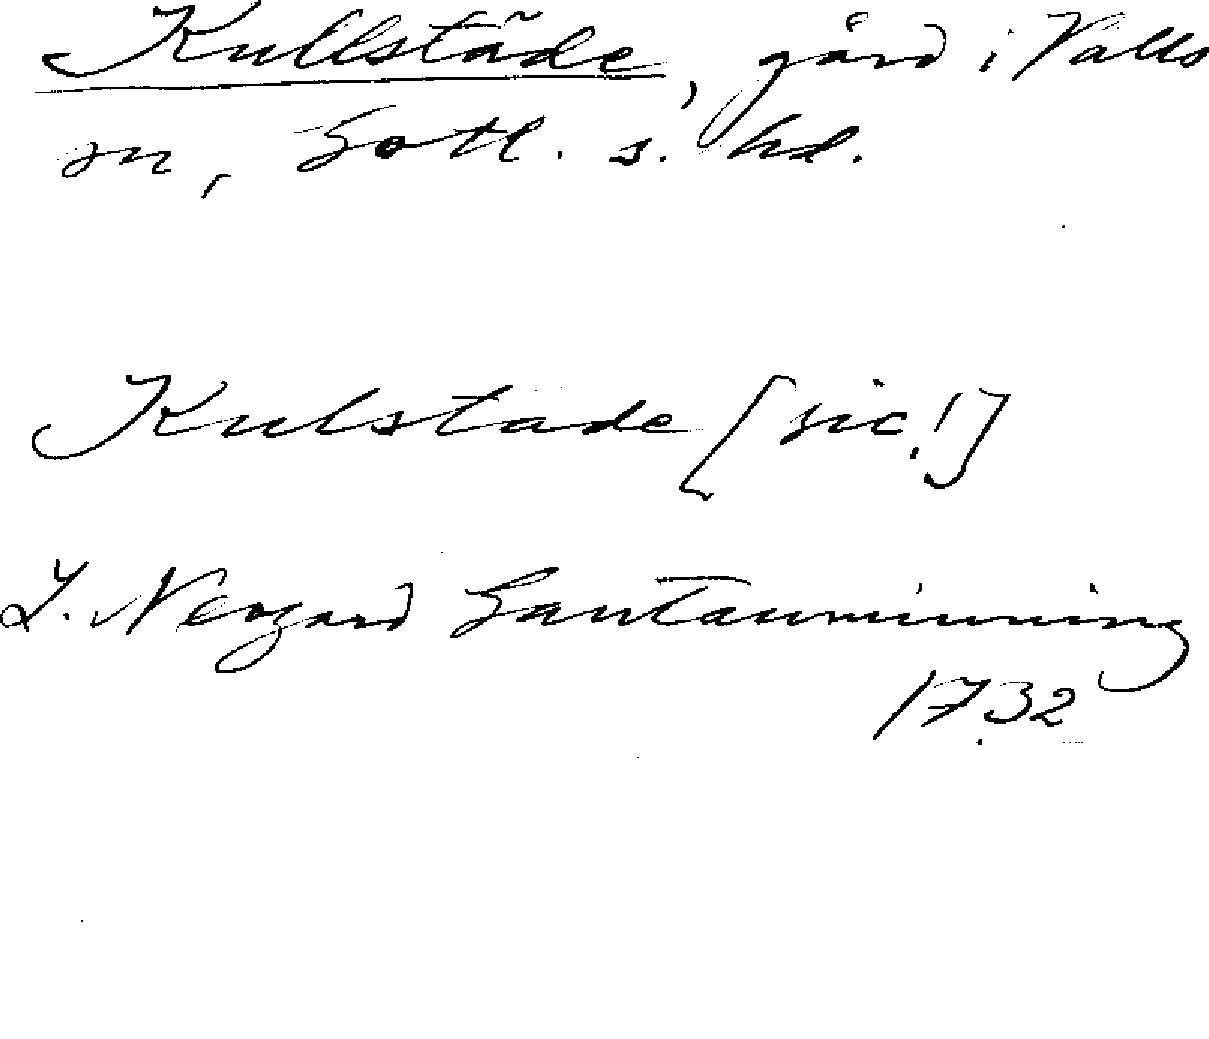 Kullstäde, gård i Valls
sn, Gotl. s. hd.
Kulstade [sic!]
L. Neogard Gautauminning
1732